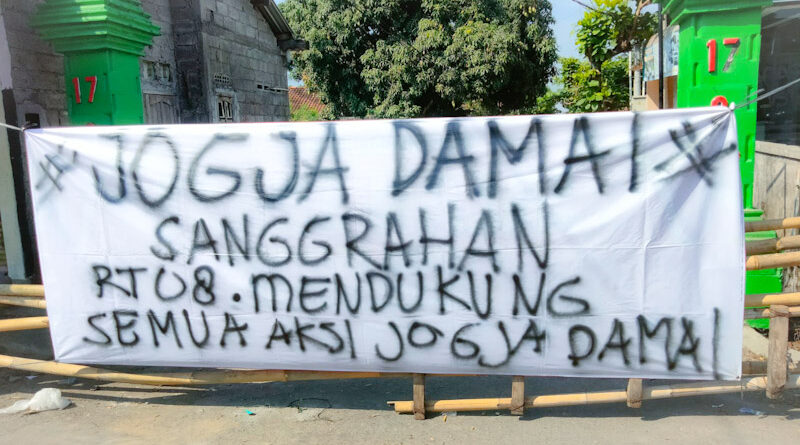 17
17
# JOGJA DAMAI #
SANGGRAHAN
RT 08 . MENDUKUNG
SEMUA AKSI JOGJA DAMAI